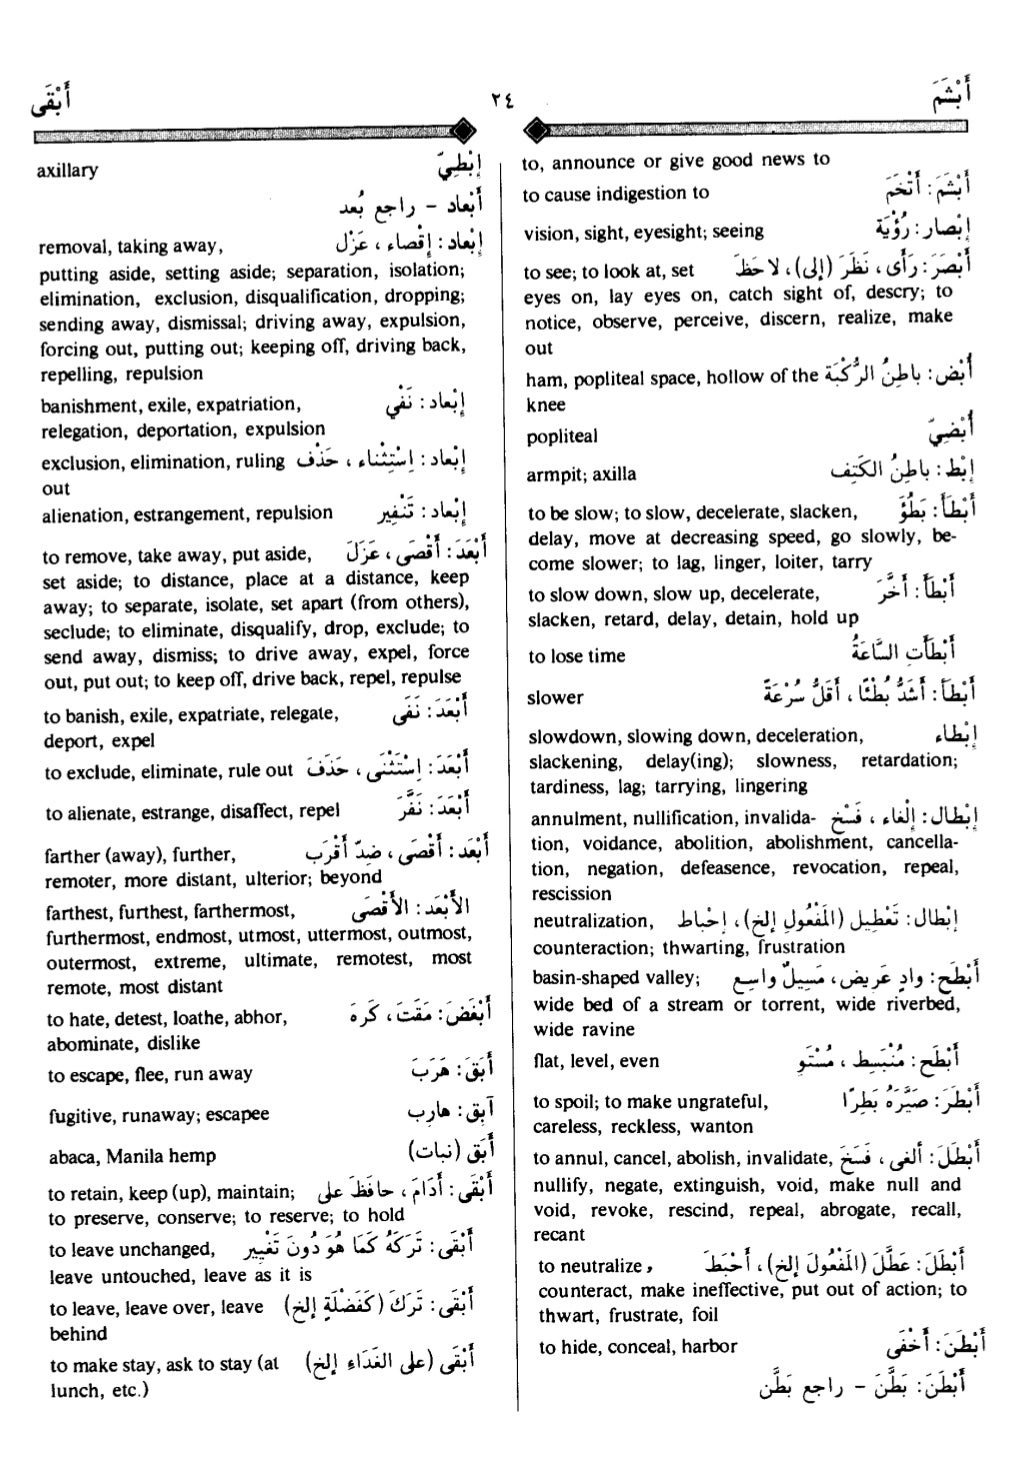 أَبْشَمَ
٢٤
أَبْقَى
to, announce or give good news to
to cause indigestion to أَبْشَمَ: أَتْخَمَ
vision, sight, eyesight; seeing إِبْصار: رُؤْيَة
to see; to look at, set أَبْصَرَ: رَأَى، نَظَرَ (إلى)، لاحَظَ
eyes on, lay eyes on, catch sight of, descry; to
notice, observe, perceive, discern, realize, make
out
ham, popliteal space, hollow of the أُبْض: باطِنُ الرُّكْبَة
knee
popliteal أُبْضِيّ
armpit; axilla إِبْط: باطِنُ الكَتِف
to be slow; to slow, decelerate, slacken, أَبْطَأَ: بَطُؤَ
delay, move at decreasing speed, go slowly, be-
come slower; to lag, linger, loiter, tarry
to slow down, slow up, decelerate, أَبْطَأَ: أَخَّرَ
slacken, retard, delay, detain, hold up
to lose time أَبْطَأَتِ السَّاعَةُ
slower أَبْطَأ: أَشَدُّ بُطْئًا، أَقَلُّ سُرْعَةً
slowdown, slowing down, deceleration, إِبْطاء
slackening, delay(ing); slowness, retardation;
tardiness, lag; tarrying, lingering
annulment, nullification, invalida- إِبْطال: إِلْغاء، فَسْخ
tion, voidance, abolition, abolishment, cancella-
tion, negation, defeasence, revocation, repeal,
rescission
neutralization, إِبْطال: تَعْطِيل (المَفْعُولِ إلخ)، إحْباط
counteraction; thwarting, frustration
basin-shaped valley; أَبْطَح: وادٍ عَرِيض، مَسِيلٌ واسِع
wide bed of a stream or torrent, wide riverbed,
wide ravine
flat, level, even أَبْطَح: مُنْبَسِط، مُسْتَوٍ
to spoil; to make ungrateful, أَبْطَرَ: صَيَّرَهُ بَطِرًا
careless, reckless, wanton
to annul, cancel, abolish, invalidate, أَبْطَلَ: ألغى، فَسَخَ
nullify, negate, extinguish, void, make null and
void, revoke, rescind, repeal, abrogate, recall,
recant
to neutralize, أَبْطَلَ: عَطَّلَ (المَفْعُولَ إلخ)، أَحْبَطَ
counteract, make ineffective, put out of action; to
thwart, frustrate, foil
to hide, conceal, harbor أَبْطَنَ: أَخْفَى
أَبْطَنَ: بَطَّنَ - راجع بَطَّن
axillary إِبْطِيّ
أَبْعاد - راجع بُعد
removal, taking away, إِبْعاد: إِقْصاء، عَزْل
putting aside, setting aside; separation, isolation;
elimination, exclusion, disqualification, dropping;
sending away, dismissal; driving away, expulsion,
forcing out, putting out; keeping off, driving back,
repelling, repulsion
banishment, exile, expatriation, إِبْعاد: نَفْي
relegation, deportation, expulsion
exclusion, elimination, ruling إِبْعاد: اِسْتِثْناء، حَذْف
out
alienation, estrangement, repulsion إِبْعاد: تَنْفِير
to remove, take away, put aside, أَبْعَدَ: أَقْصَى، عَزَلَ
set aside; to distance, place at a distance, keep
away; to separate, isolate, set apart (from others),
seclude; to eliminate, disqualify, drop, exclude; to
send away, dismiss; to drive away, expel, force
out, put out; to keep off, drive back, repel, repulse
to banish, exile, expatriate, relegate, أَبْعَدَ: نَفَى
deport, expel
to exclude, eliminate, rule out أَبْعَدَ: اِسْتَثْنَى، حَذَفَ
to alienate, estrange, disaffect, repel أَبْعَدَ: نَفَّرَ
farther (away), further, أَبْعَد: أَقْصَى، ضِدّ أَقْرَب
remoter, more distant, ulterior; beyond
farthest, furthest, farthermost, الأَبْعَد: الأَقْصَى
furthermost, endmost, utmost, uttermost, outmost,
outermost, extreme, ultimate, remotest, most
remote, most distant
to hate, detest, loathe, abhor, أَبْغَضَ: مَقَتَ، كَرِهَ
abominate, dislike
to escape, flee, run away أَبَقَ: هَرَبَ
fugitive, runaway; escapee آبِق: هارِب
abaca, Manila hemp أَبَق (نبات)
to retain, keep (up), maintain; أَبْقَى: أَدَامَ، حافَظَ على
to preserve, conserve; to reserve; to hold
to leave unchanged, أَبْقَى: تَرَكَهُ كَمَا هُوَ دُونَ تَغْيِير
leave untouched, leave as it is
to leave, leave over, leave أَبْقَى: تَرَكَ (كَفَضْلَةٍ إلخ)
behind
to make stay, ask to stay (at أَبْقَى (على الغَدَاءِ إلخ)
lunch, etc.)